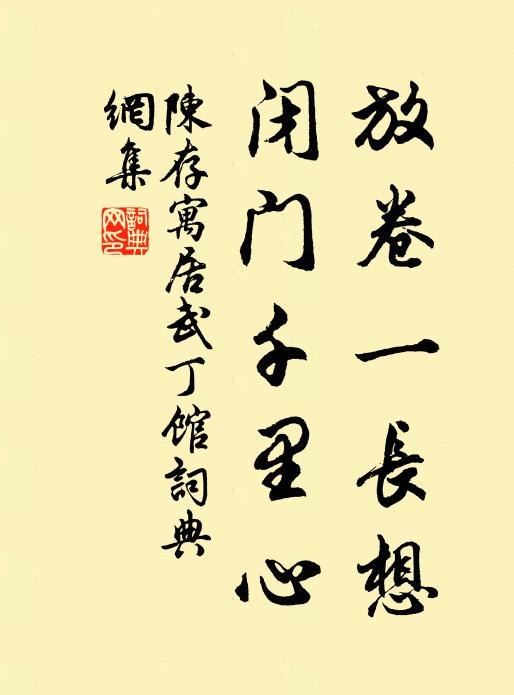 放卷一長想
閉門千里心
陳存寓居武丁館詞典
網集
詞典
网印